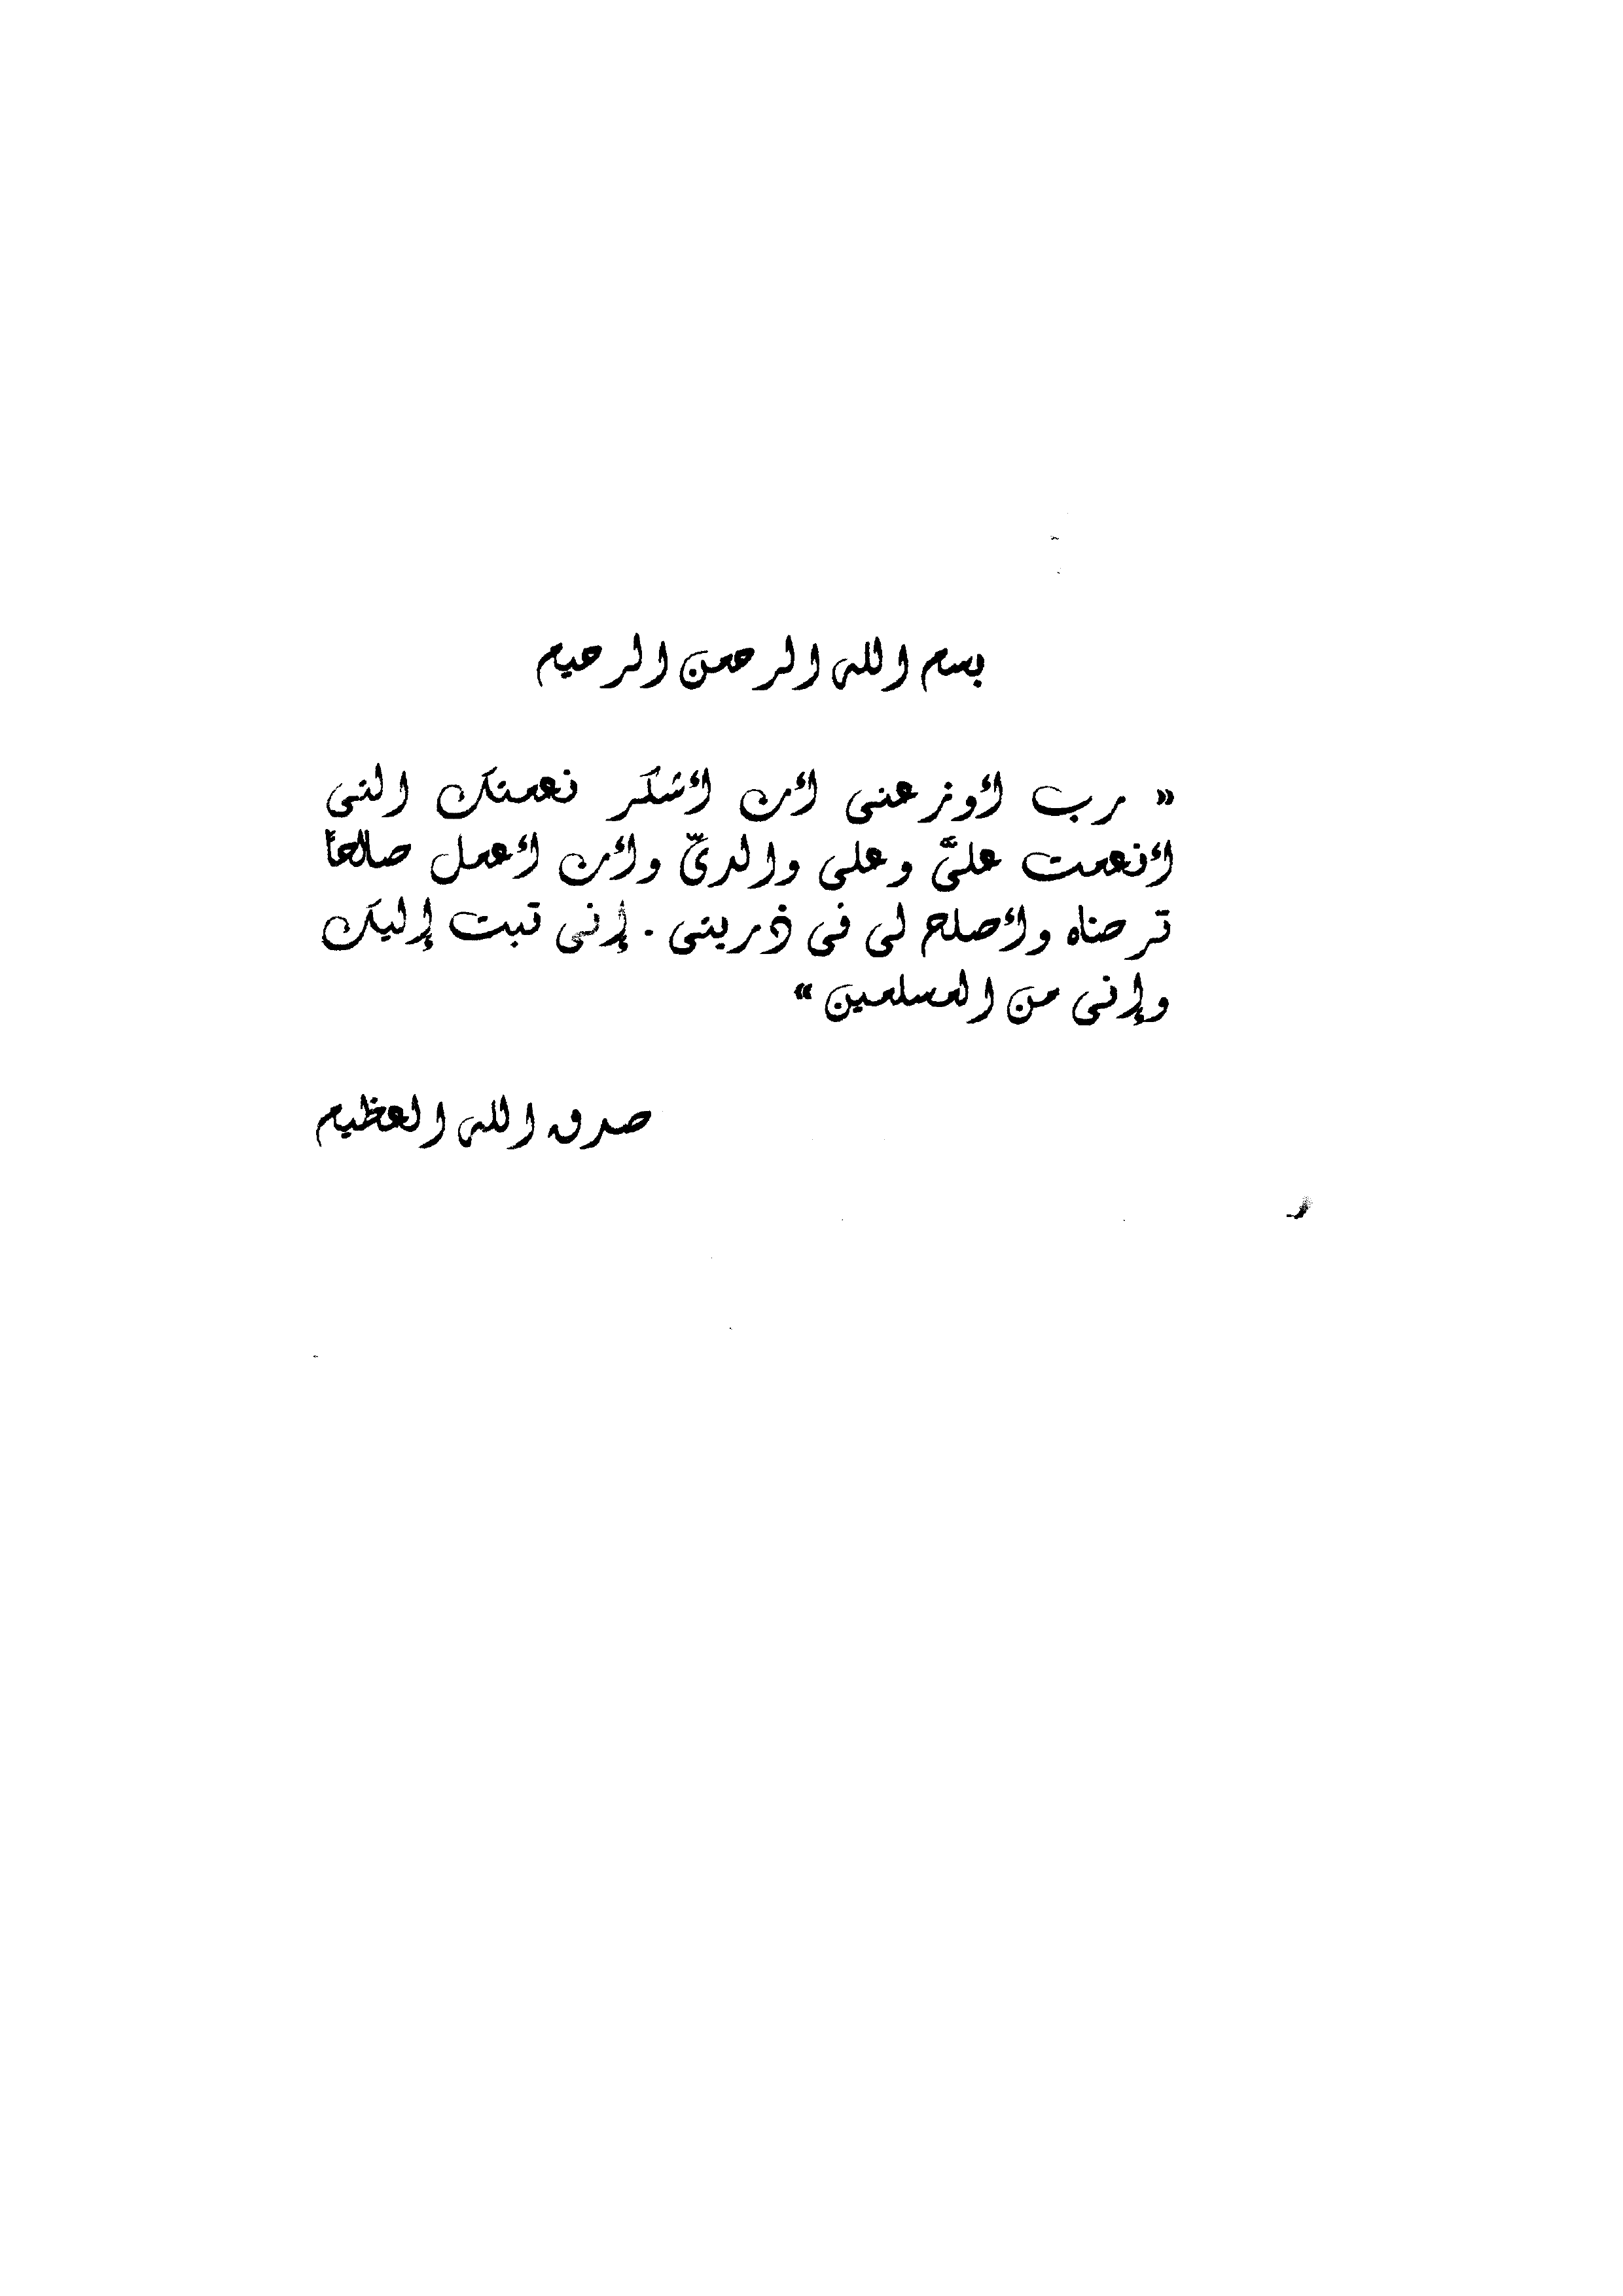 بسم الله الرحمن الرحيم
« رب أوزعنى أن أشكر نعمتك التى
أنعمت علىَّ وعلى والدىّ وأن أعمل صالحاً
ترضاه وأصلح لى فى ذريتى . إنى تبت إليك
وإنى من المسلمين »
صدق الله العظيم